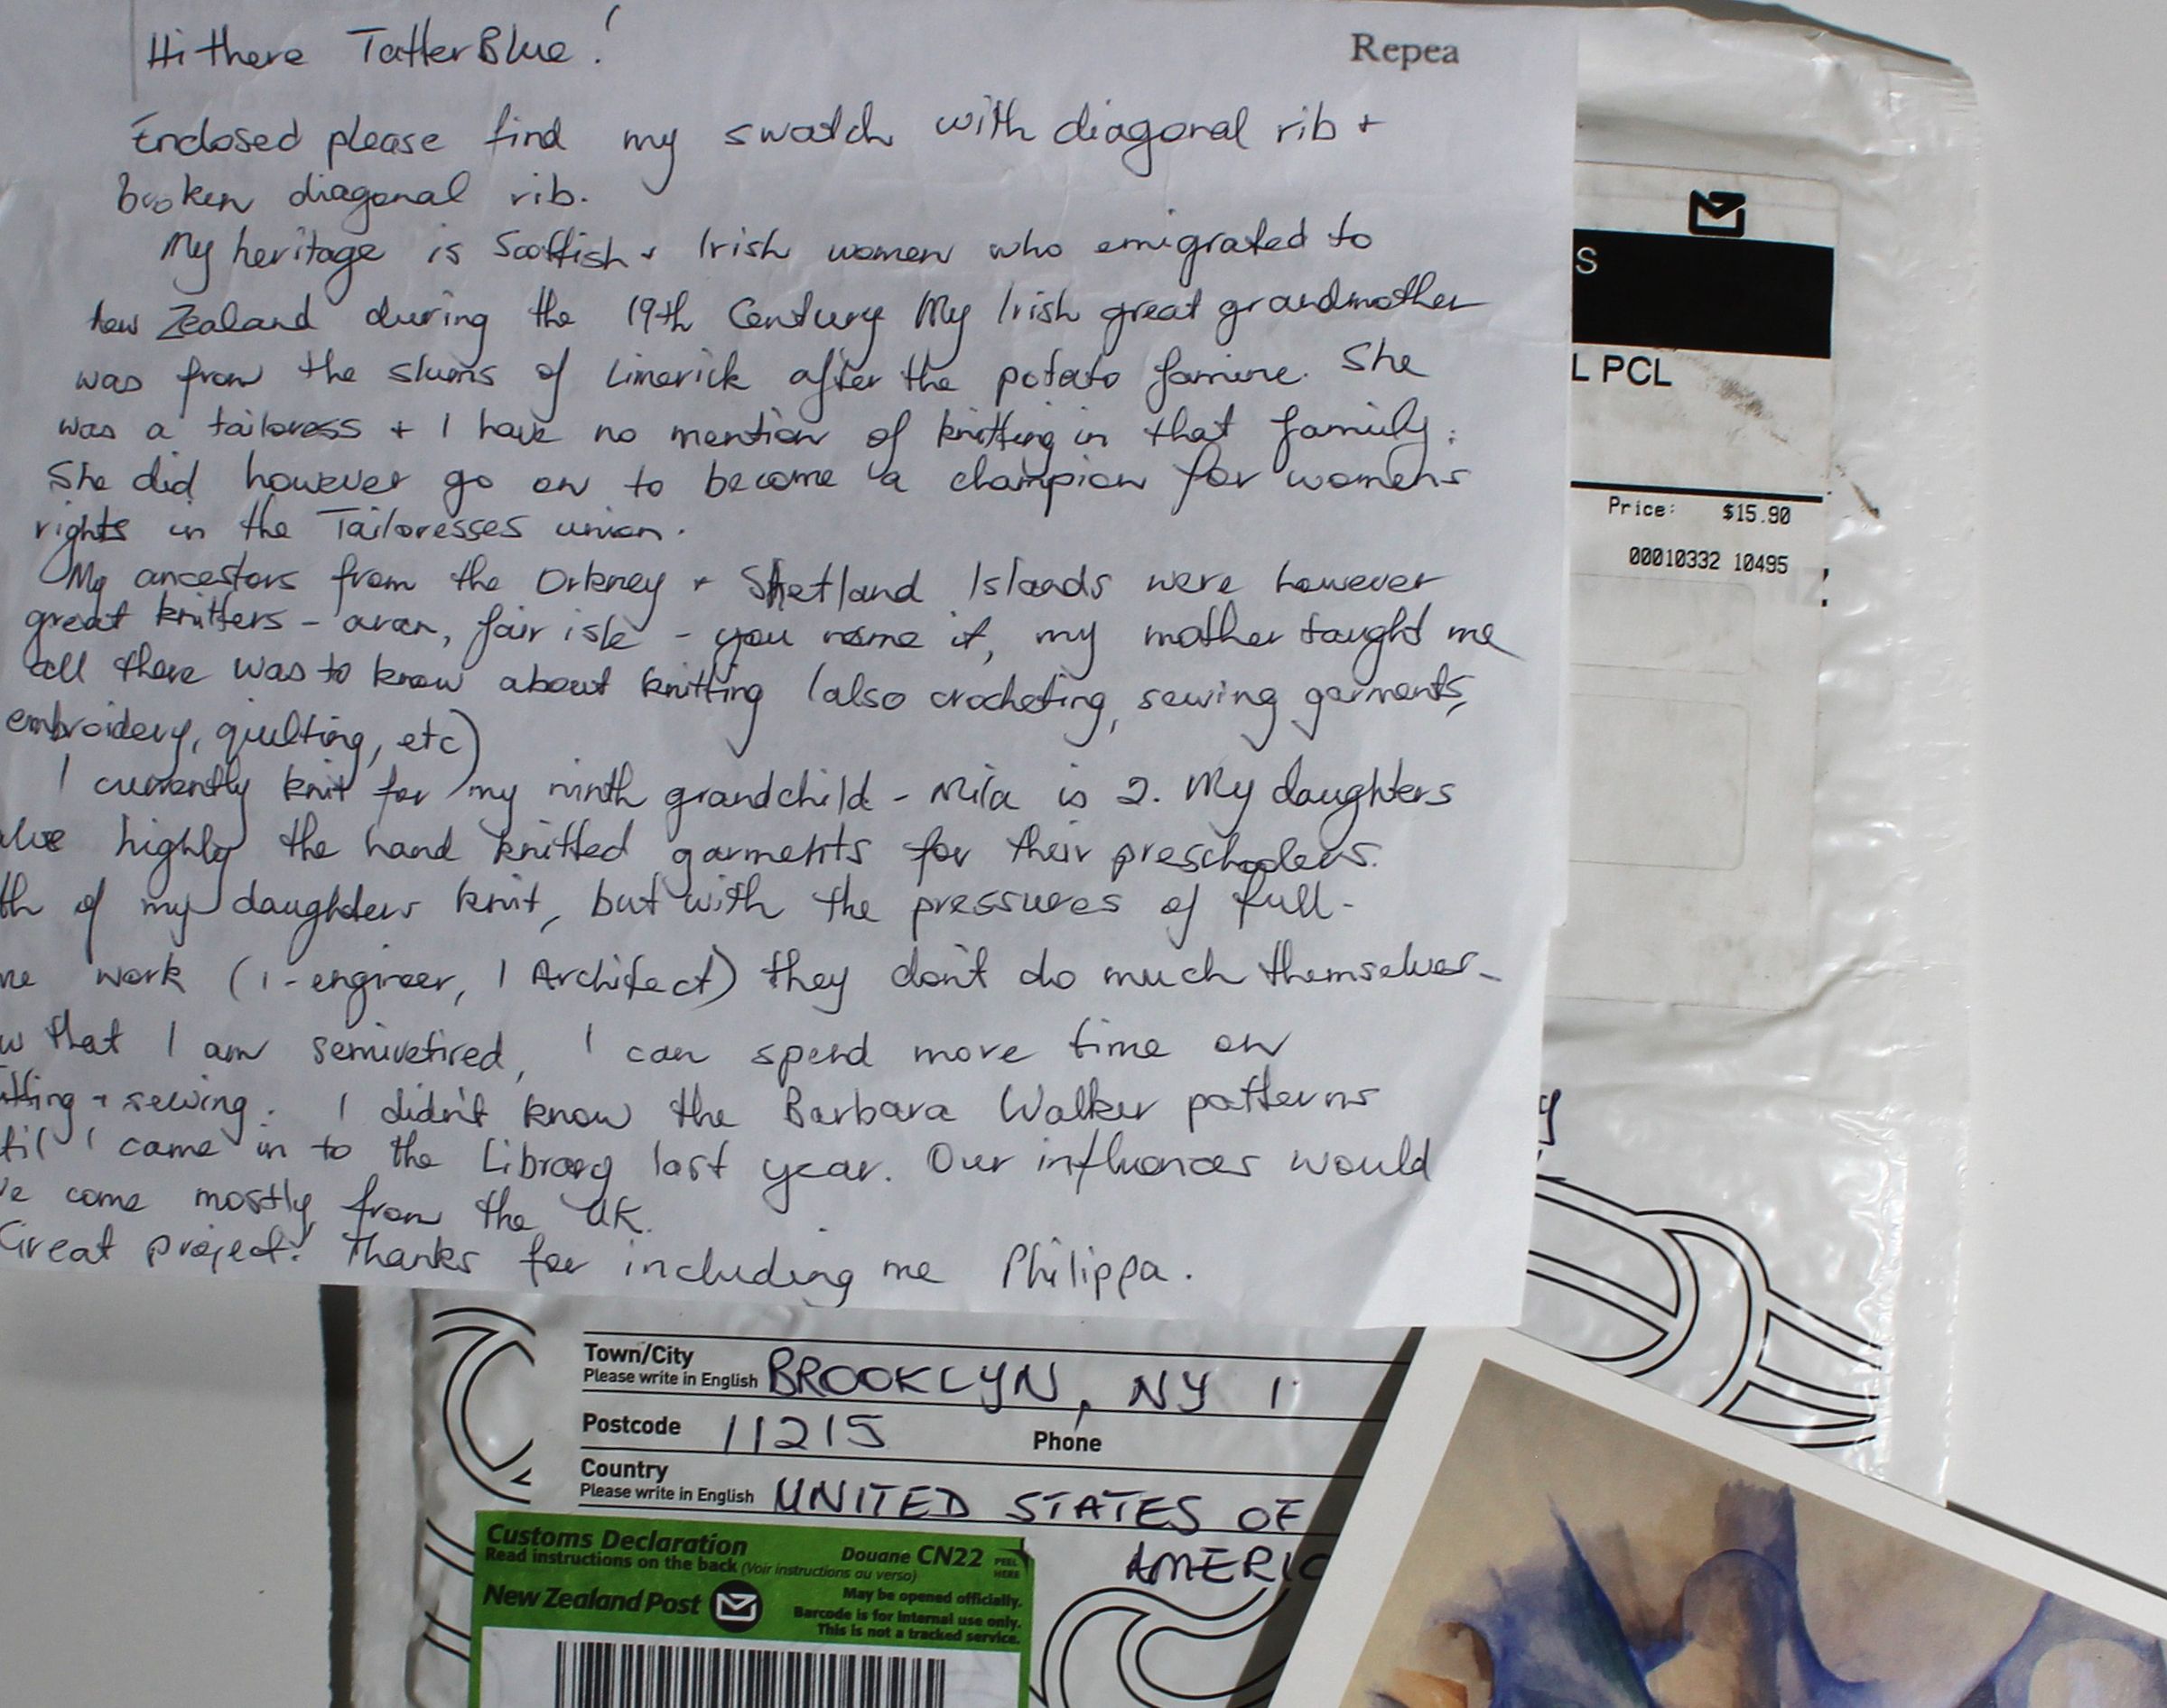 Hi there TatterBlue!
Repea
Enclosed please find my swatch with diagonal rib +
broken diagonal rib.
My heritage is Scottish + Irish women who emigrated to
New Zealand during the 19th Century My Irish great grandmother
was from the slums of Limerick after the potato famine. She
was a tailoress + I have no mention of knitting in that family.
She did however go on to become a champion for womens
rights in the Tailoresses union.
My ancestors from the Orkney + Shetland Islands were however
great knitters - aran, fair isle - you name it, my mother taught me
all there was to know about knitting (also crocheting, sewing garments,
embroidery, quilting, etc)
I currently knit for my ninth grandchild - Mila is 2. My daughters
alue highly the hand knitted garments for their preschoolers.
th of my daughters knit, but with the pressures of full-
me work (1-engineer, 1 Architect) they don't do much themselves-
w that I am semiretired, I can spend more time on
itting + sewing. I didn't know the Barbara Walker patterns
til I came in to the Library last year. Our influences would
ve come mostly from the UK.
Great project! Thanks for including me Philippa.
S
L PCL
Price: $15.90
00010332 10495
Town/City
Please write in English BROOKLYN, NY 1
Postcode 11215 Phone
Country
Please write in English UNITED STATES OF
AMERIC
Customs Declaration
Douane CN22 PEEL HERE
Read instructions on the back (Voir instructions au verso)
New Zealand Post
May be opened officially.
Barcode is for internal use only.
This is not a tracked service.